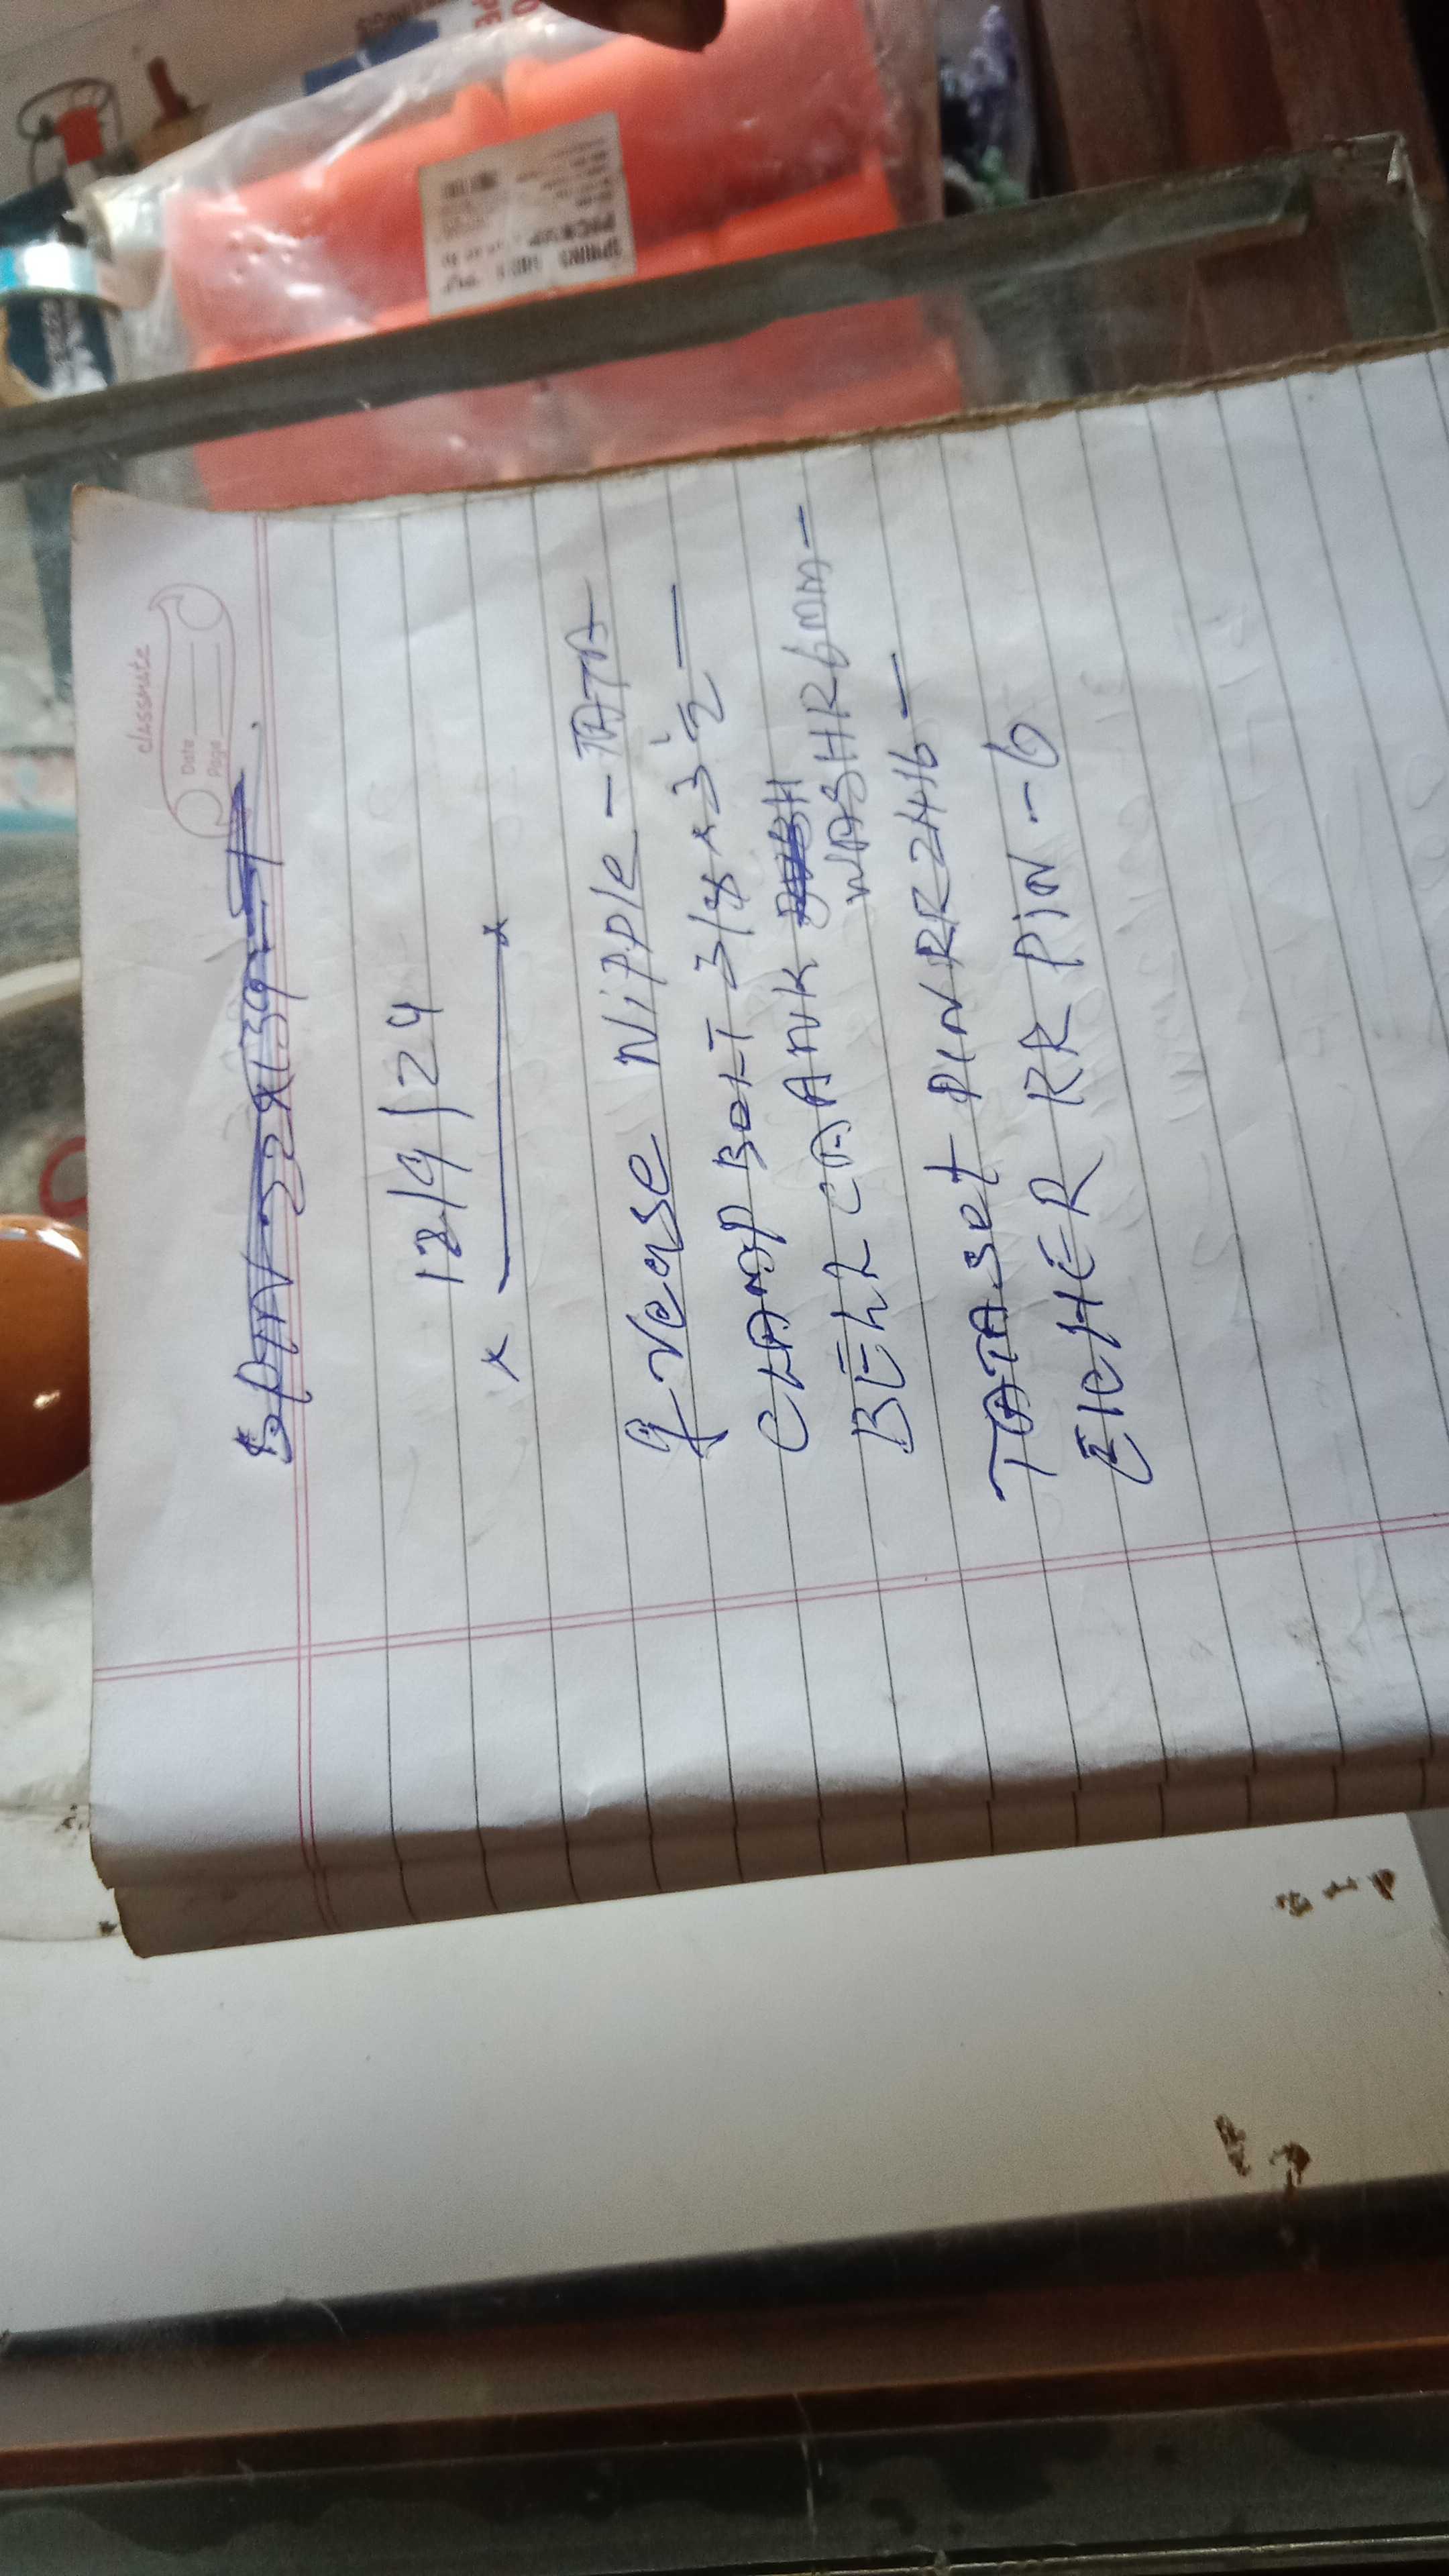 classmate
Date
Page
18/9/24
x x
Reverse Nipple - TATA
CLAMP BOLT 3/8 x 3 1/2 -
BELL CRANK WASHR 6mm -
TATA Set PIN RR 2416 -
EICHER RR PIN - 6